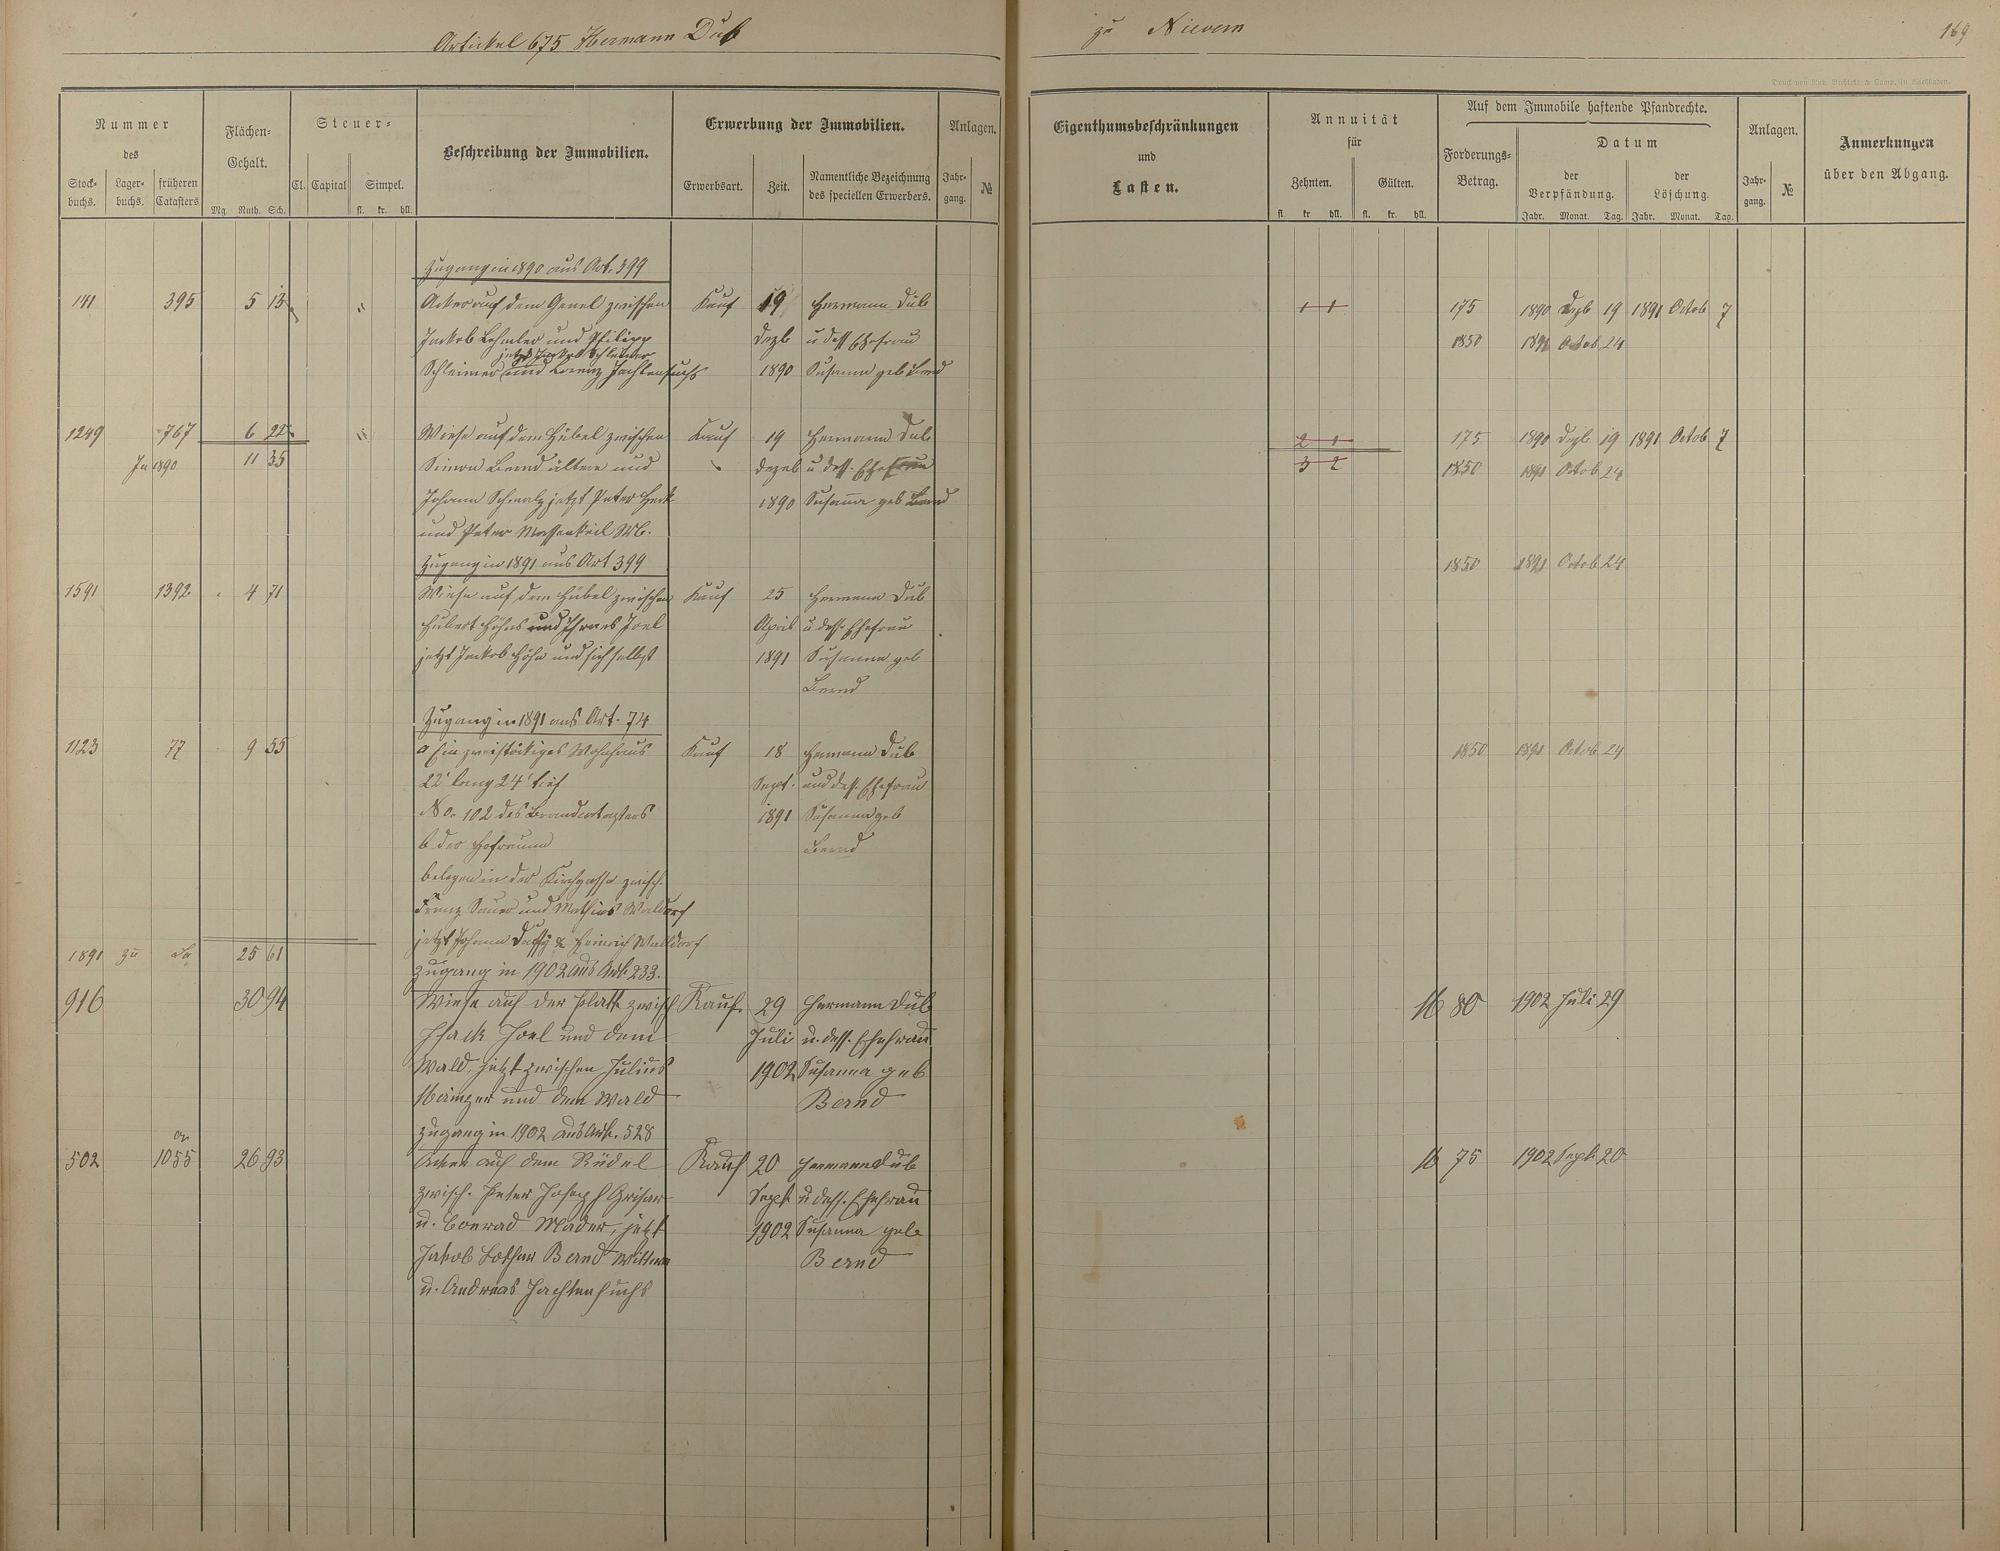 Artickel 675 Hermann Dub
zu Nievern
169
Nummer
des
Stock-
buchs.
Lager-
buchs.
früheren
Catasters
Flächen-
Gehalt.
Mg. Ruth. Sch.
Steuer-
Cl. Capital Simpel.
fl. kr. hll.
Beschreibung der Immobilien.
Erwerbung der Immobilien.
Erwerbsart. Zeit.
Namentliche Bezeichnung
des speciellen Erwerbers.
Anlagen.
Jahr-
gang.
№
Eigenthumsbeschränkungen
und
Lasten.
Annuität
für
Zehnten. Gülten.
fl kr hll. fl. kr. hll.
Auf dem Immobile haftende Pfandrechte.
Forderungs-
Betrag.
Datum
der
Verpfändung.
der
Löschung.
Jahr. Monat. Tag. Jahr. Monat. Tag.
Anlagen.
Jahr-
gang.
№
Anmerkungen
über den Abgang.
Zugang in 1890 aus Art. 399
141 395 5 13 Acker auf dem zwischen Kauf 19 Hermann Dub 1 1 175 1890 Dezb 19 1891 Octob 7
Jackob und Philipp Dezb u dess Ehefrau 1850 1891 Octob 24
jetzt Jackob Schleimer
Schleimer und Lorenz Jachtenfuchs 1890 Susanna geb Bernd
1249 767 6 22 Wiese auf dem Hübel zwischen Kauf 19 Hermann Dub 2 1 175 1890 Dezb 19 1891 Octob 7
In 1890 11 35 Simon Bernd ältere und Dezeb u dess. Ehefrau 3 2 1850 1891 Octob 24
Johann Schmalz jetzt Peter 1890 Susanna geb Bernd
und Peter Massenkeil
Zugang in 1891 aus Art 399 1850 1891 Octob 24
1591 1392 4 71 Wiese auf dem Hübel zwischen Kauf 25 Hermann Dub
Hubert Höhns und Joel April u dess. Ehefrau
jetzt Jackob Höhn und sich selbst 1891 Susanna geb
Bernd
Zugang in 1891 aus Art. 74
1123 77 9 55 a Ein zweistöckiges Wohnhaus Kauf 18 Hermann Dub 1850 1891 Octob 24
22' lang 24' tief Sept. und dess. Ehefrau
No. 102 des Brandcatasters 1891 Susanna geb
b der Hofraum Bernd
belegen in der Kirchgasse zwisch.
Franz Sauer und Mathias Waldorf
jetzt Johann & Heinrich Walldorf
1891 zu 25 61
Zugang in 1902 aus Art. 233.
916 30 94 Wiese auf der Platt zwisch Kauf 29 Hermann Dub 80 1902 Juli 29
Isack Joel und dem Juli u. dess. Ehefrau
Wald, jetzt zwischen Julius 1902 Susanna geb
und dem Wald Bernd
Zugang in 1902 aus Art. 528
502 1055 26 93 Acker auf dem Rüdel Kauf 20 Hermann Dub 75 1902 Sept 20
zwisch. Peter Joseph Sept u dess. Ehefrau
u. Conrad Mader, jetzt 1902 Susanna geb
Jakob Lothar Bernd Wittwe Bernd
u. Andreas Jachtenfuchs